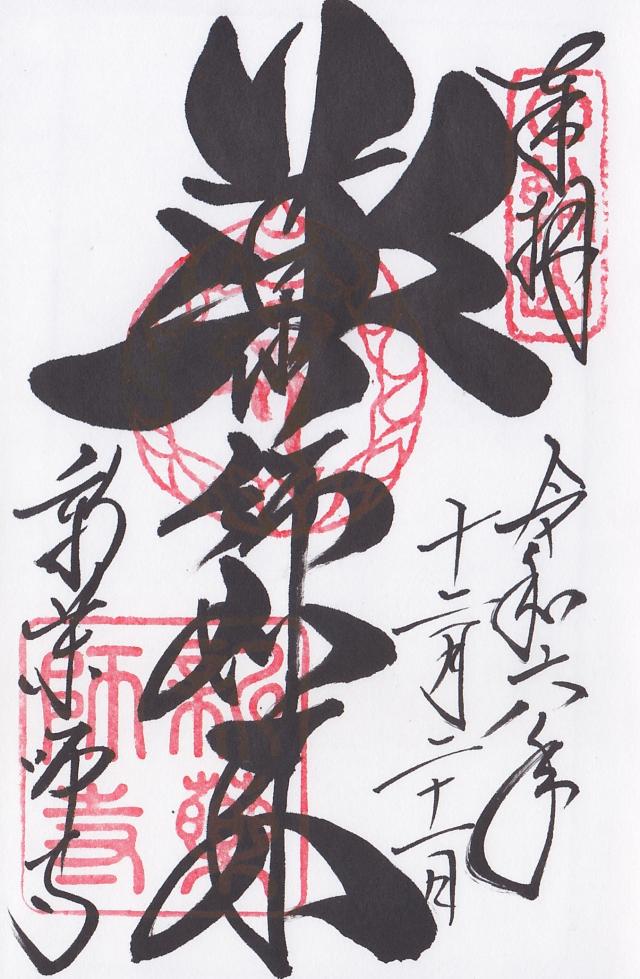 奉拝
令和六年
十二月二十一日
薬師如来
新薬師寺
新藥師寺